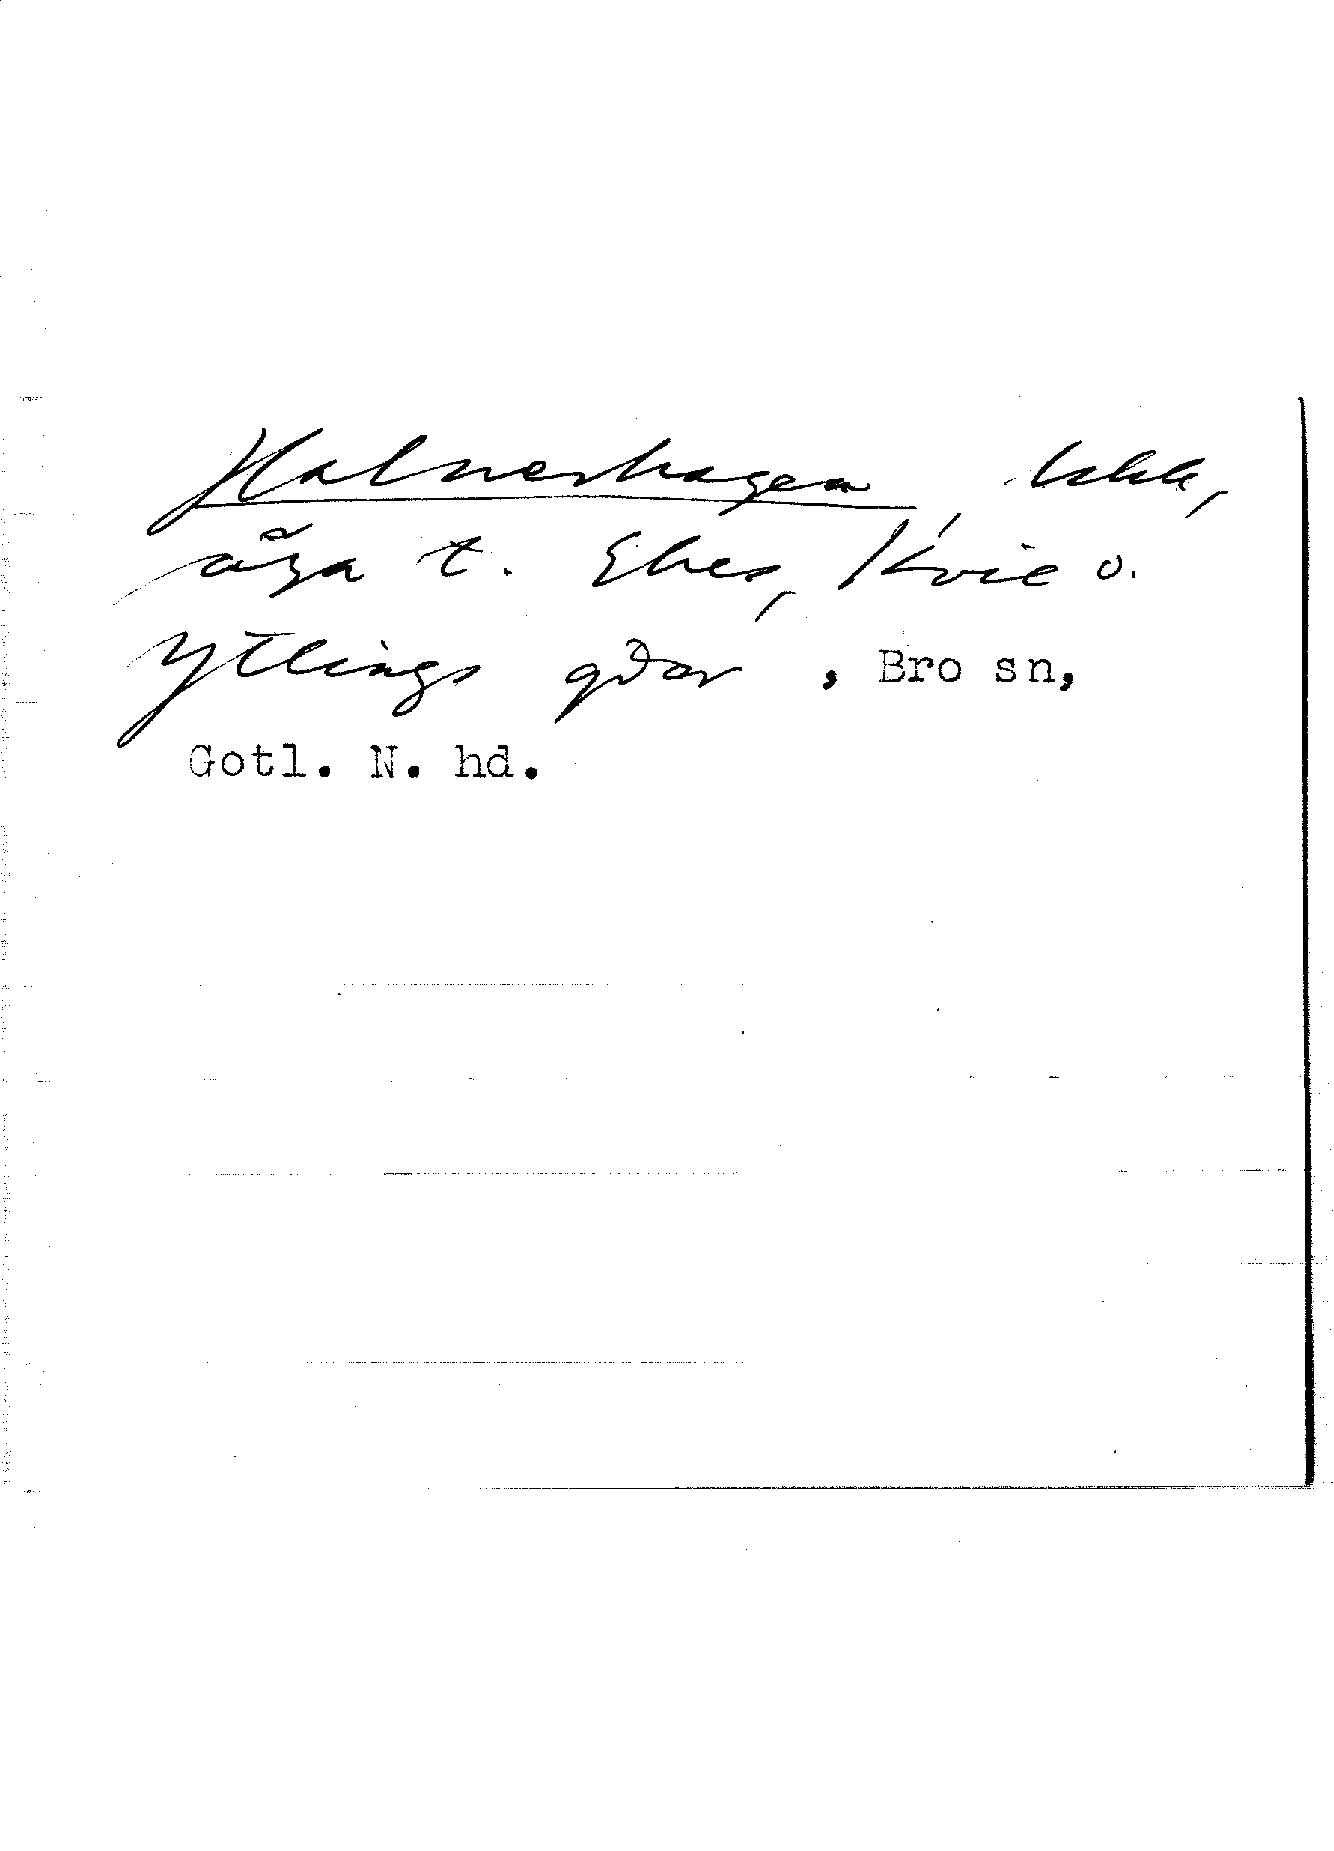 Halnerhagen, 
äga t. Ekes, Kvie o.
Ytlings gdar, Bro sn,
Gotl. N. hd.